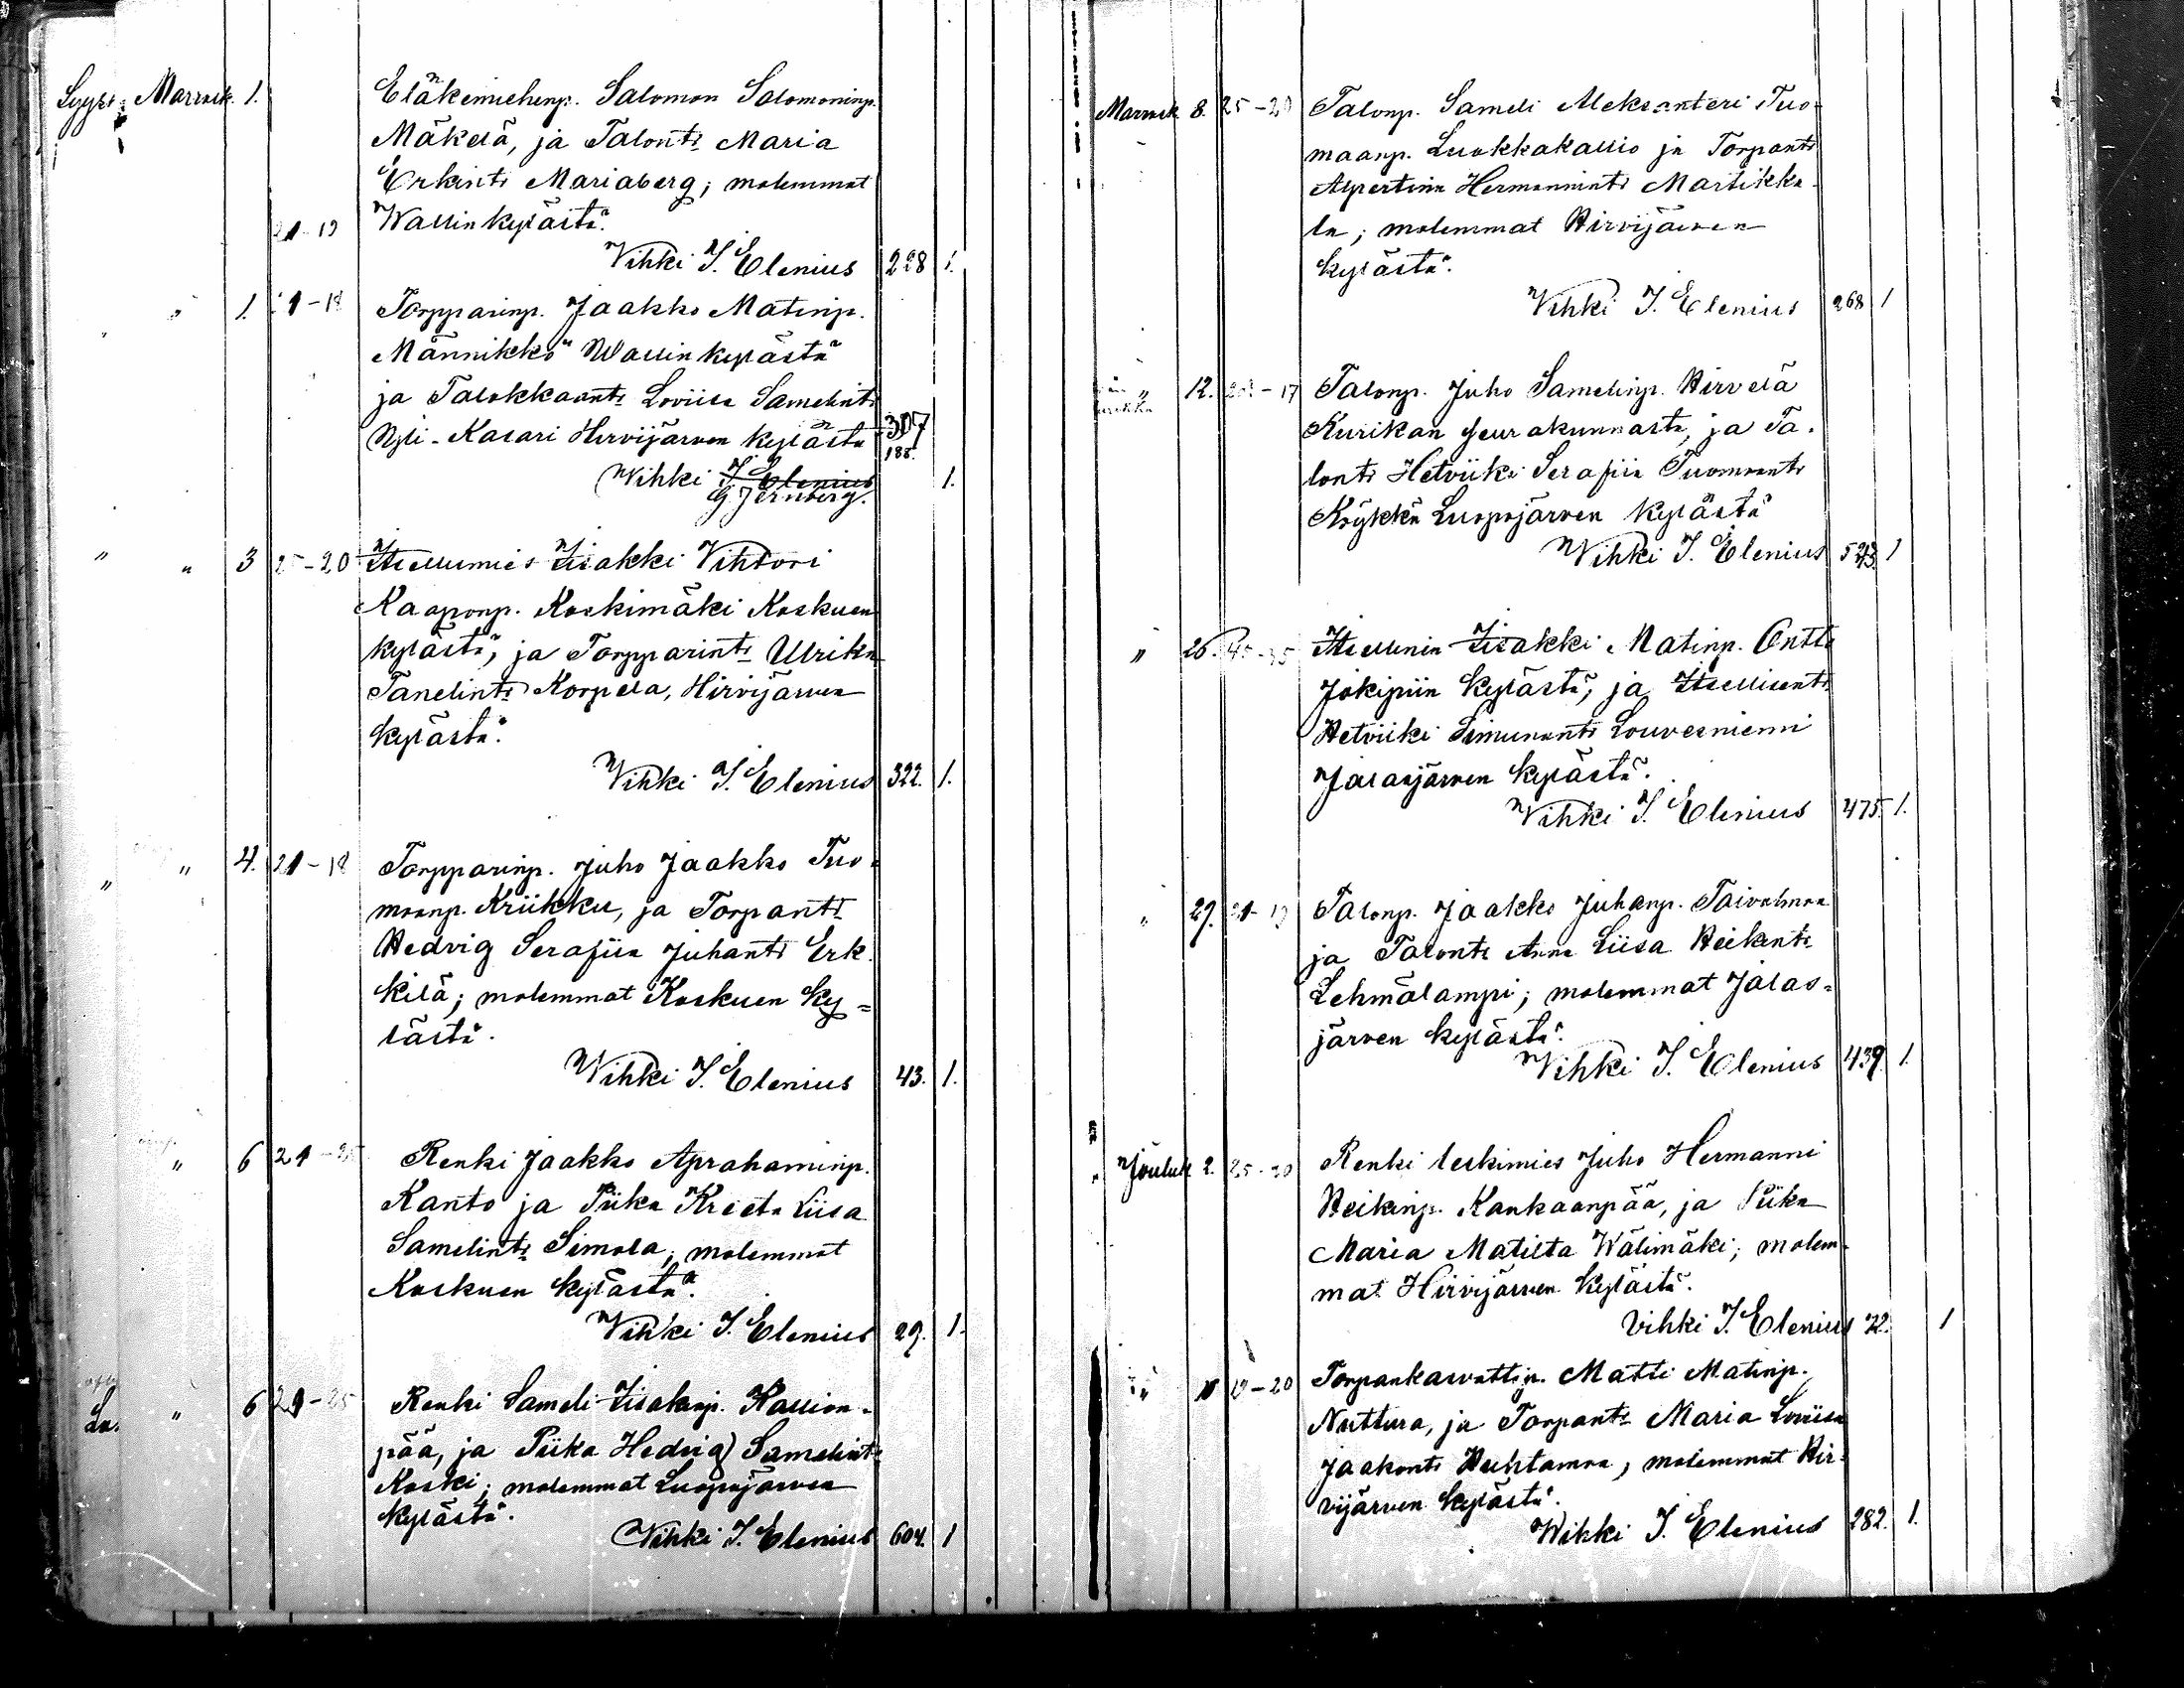 Syysk. Marrask. 1.
Eläkemiehenp. Salomon Salomoninp.
Mäkelä, ja Talontr Maria
Erkintr Mariaberg; molemmat
21-19 Wallinkylästä.
Vihki J. Elenius 228 1.
" 1. 21-18 Torpparinp. Jaakko Matinp.
Männikkö Wallinkylästä
ja Talokkaantr Loviisa Samelintr
Yli-Kasari Hirvijärven kylästä 307
188.
Wihki J. Elenius 1.
G Jernberg.
" " 3 25-20 Itsellumies Iisakki Vihtori
Kaaponp. Koskimäki Koskuen
kylästä, ja Torpparintr Ulrika
Tanelintr Korpela, Hirvijärven
kylästä.
Vihki J. Elenius 322. 1.
" " 4. 21-18 Torpparinp. Juho Jaakko Tuo-
maanp. Kriikku, ja Torpantr
Hedvig Serafiia Juhantr Erk-
kilä; molemmat Koskuen ky=
lästä.
Wihki J. Elenius 43. 1.
" 6 21-25 Renki Jaakko Aprahaminp.
Kanto ja Piika Kreeta Liisa
Samelintr Simola; molemmat
Koskuen kylästä.
Vihki J. Elenius 29. 1.
" 6 29-25 Renki Sameli Iisakinp. Kallion-
pää, ja Piika Hedvig Samelintr
Koski; molemmat Luopajärven
kylästä.
Vihki J. Elenius 604. 1
Marrask. 8. 25-20 Talonp. Sameli Aleksanteri Tuo-
maanp. Luokkakallio ja Torpantr
Alpertiina Hermannintr Martikka-
la; molemmat Hirvijärven
kylästä.
Vihki J. Elenius 268 1
" 12. 20-17 Talonp. Juho Samelinp. Hirvelä
Kurikan seurakunnasta, ja Ta-
lontr Hetviiki Serafiia Tuomaantr
Köykkä Luopajärven kylästä
Wihki J. Elenius 523. 1
" 26. 45-35 Itsellinen Iisakki Matinp. Ontto
Jokipiin kylästä, ja Itsellisentr
Hetviiki Simunantr Louvesniemi
Jalasjärven kylästä.
Vihki J. Elenius 475. 1.
" 29. 21-19 Talonp. Jaakko Juhanp. Taivalmaa
ja Talontr Anna Liisa Heikintr
Lehmälampi; molemmat Jalas=
järven kylästä.
Vihki J. Elenius 439. 1.
Jouluk 2. 25-30 Renki leskimies Juho Hermanni
Heikinp. Kankaanpää, ja Piika
Maria Matilta Wälimäki; molem-
mat Hirvijärven kylästä.
Vihki J. Elenius 22. 1
10 19-20 Torpankasvattip. Matti Matinp.
Nuttura, ja Torpantr Maria Loviisa
Jaakontr Huhtamaa, molemmat Hir-
vijärven kylästä.
Wihki J. Elenius 282. 1.